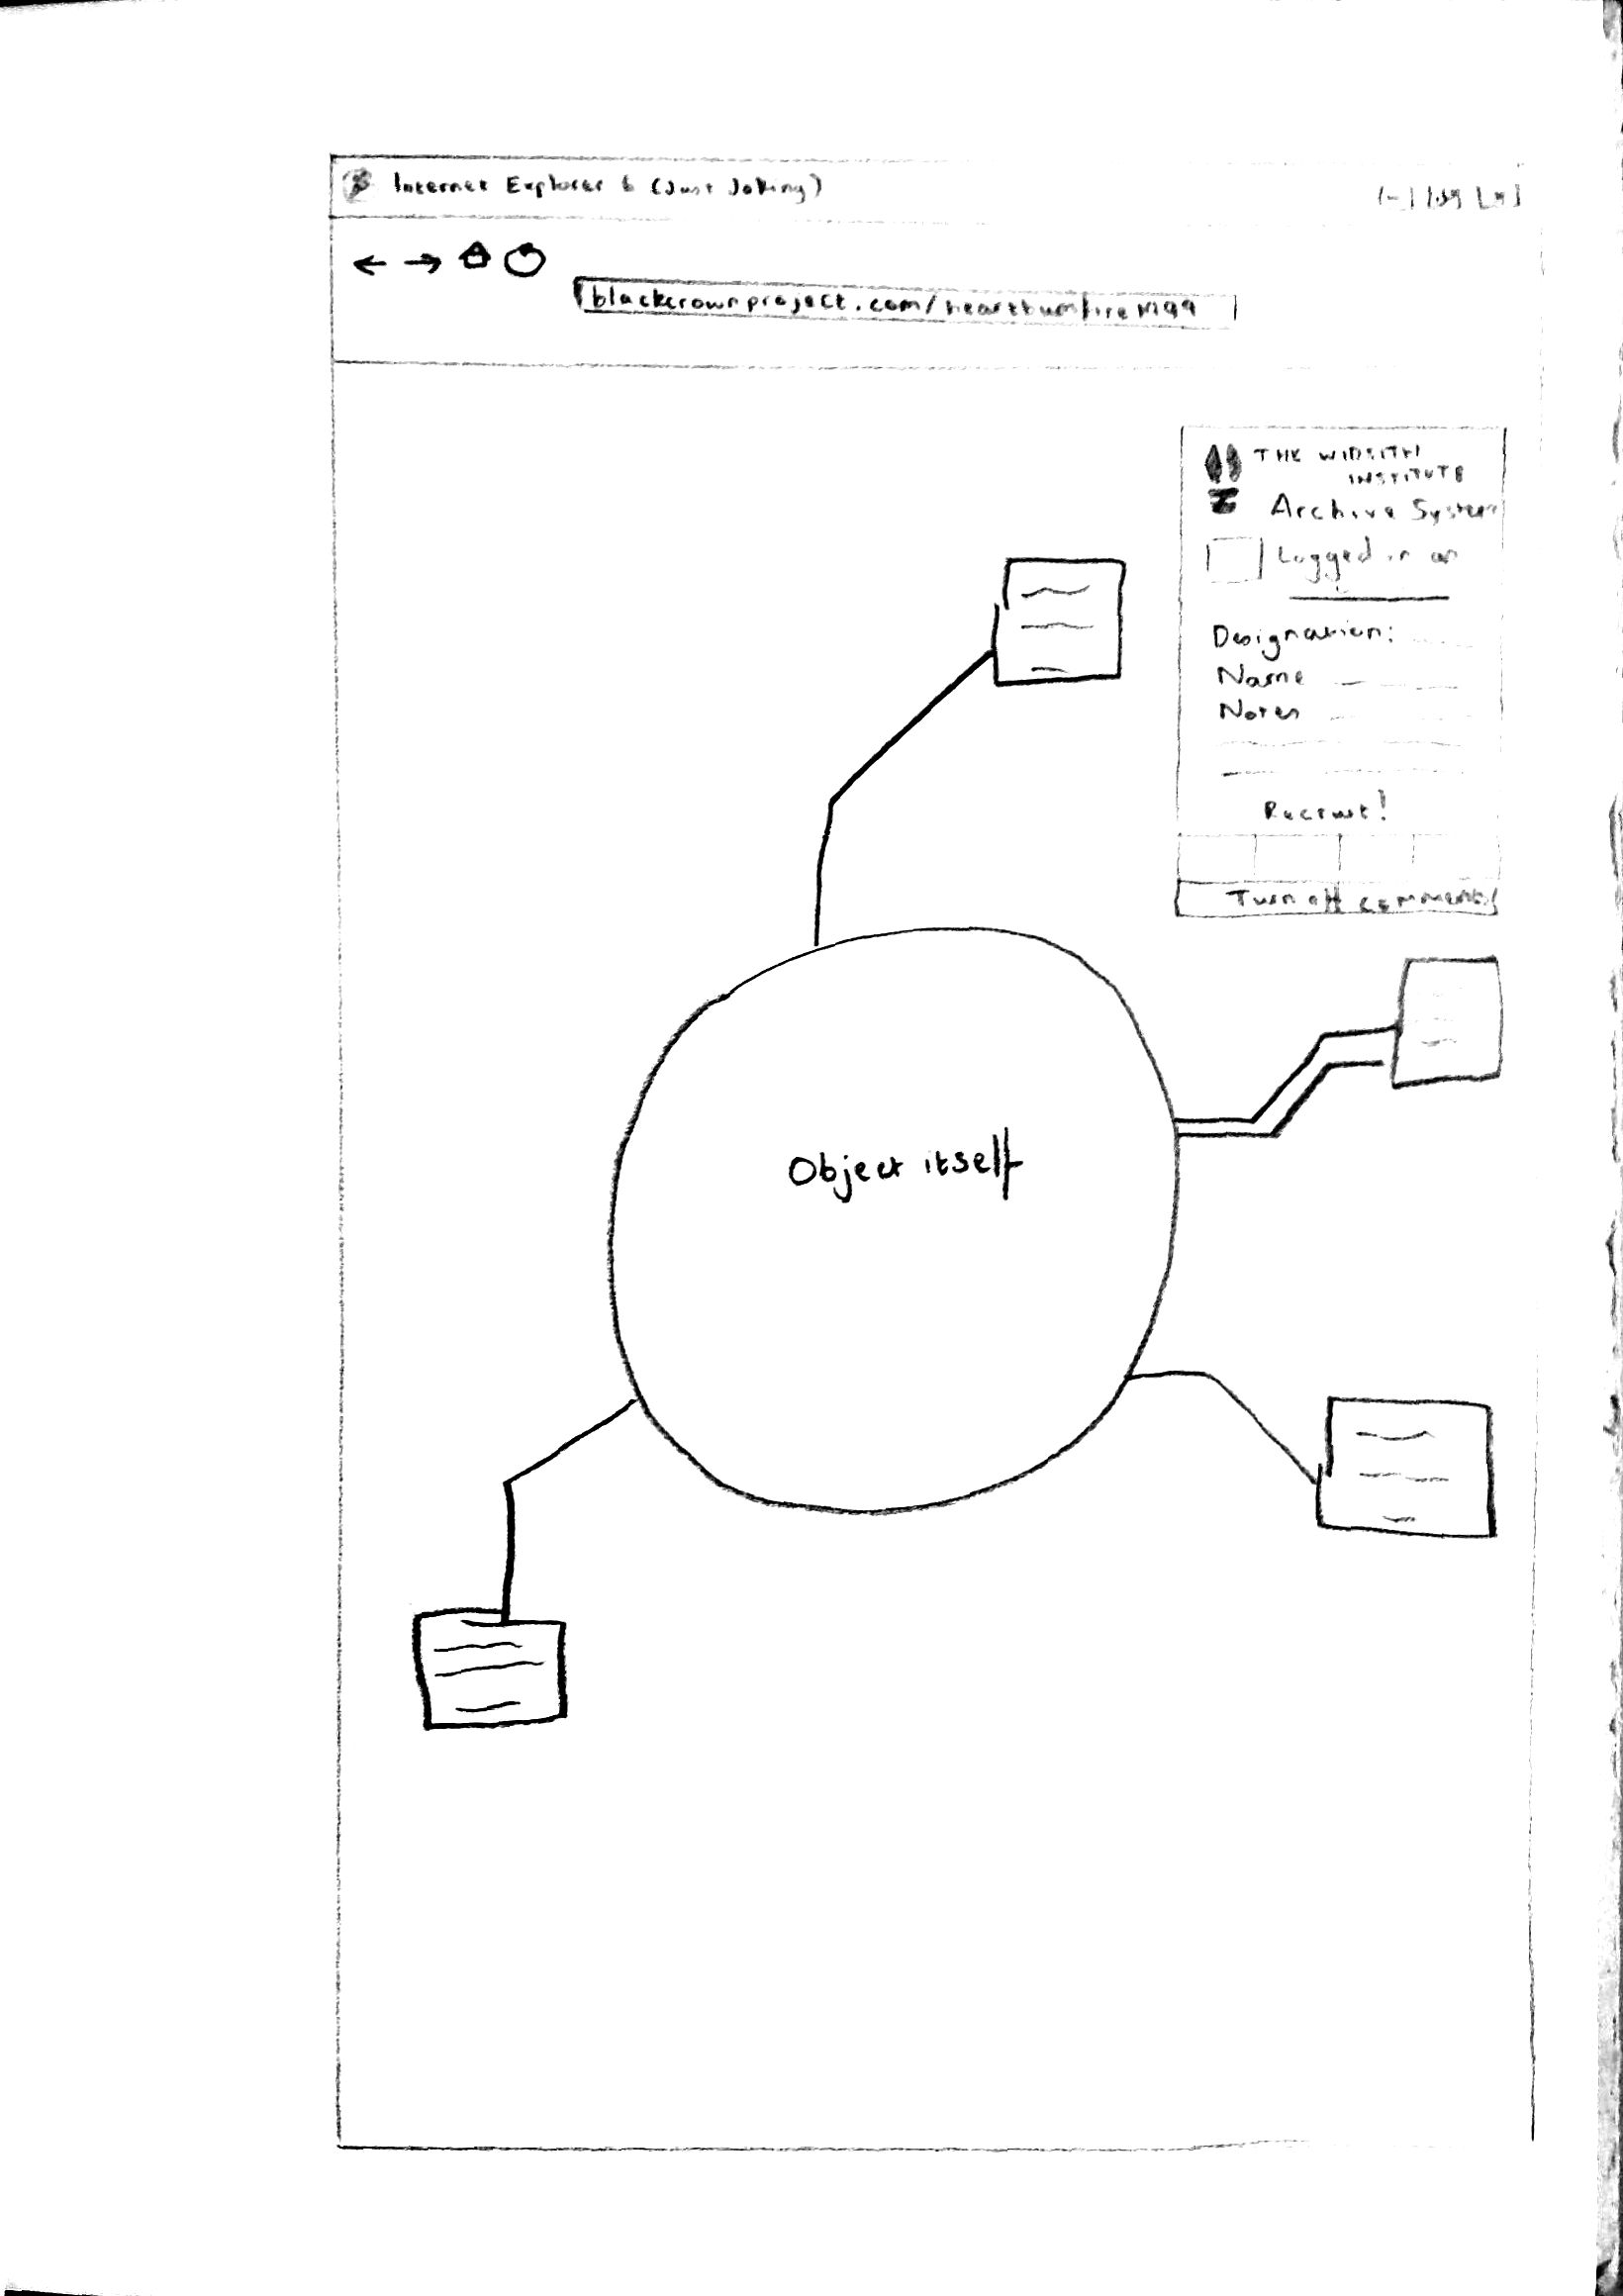 Internet Explorer 6 (Just Joking)
blackcrownproject.com/
THE WIDSITH
INSTITUTE
Archive System
Logged in as
Designation:
Name
Notes
Recruit!
Turn off comments
Object itself